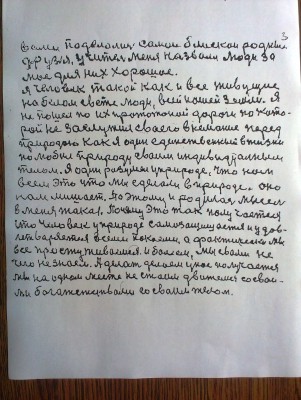 3
вами подводили самой близкой родней
друзья, учителя меня назвали люди за
мое для них хорошее.
я человек такой как и все живущие
на белом свете люди, всей нашей Земли. Я
не пошел по их протопоной дороги по кото-
рой не заслужил своего внимания перед
природою как я один единственный в жизни
полюбил природу своим индивидуальным
телом. Я один разумен у природе, что нам
всем это что мы сделали в природе. оно
нам мешает. Поэтому и родилась мысль
в меня такая, почему это так получается
что человек у природе самозащищается и удов-
летворяется всеми
все простуживаемся и болеем, мы своим не
чего не знаем. А делать делаем у нас получается
мы на одном месте не стоим движемся со свои-
ми богатствами со своим телом.